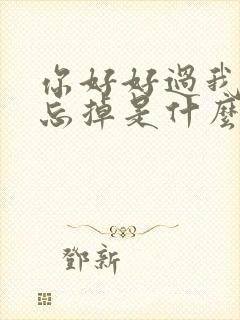 你好好過我
忘掉是什麼
鄧新